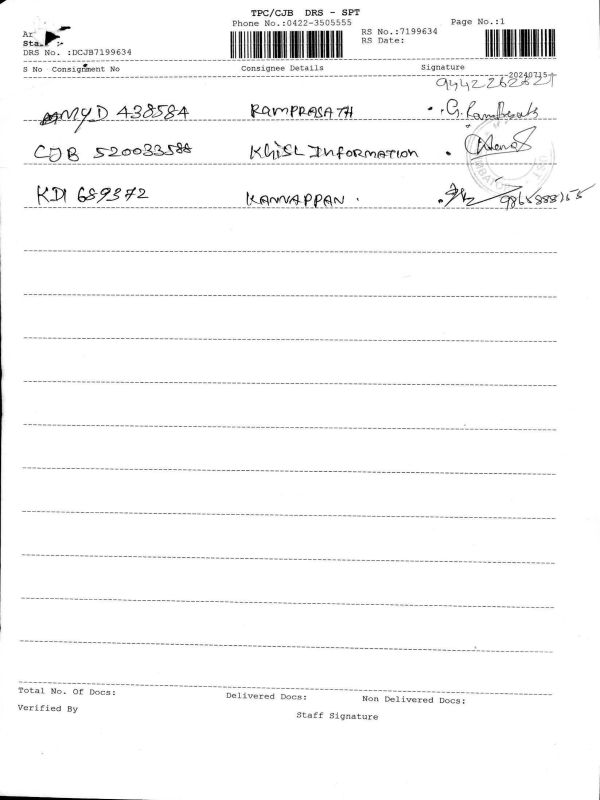 TPC/CJB DRS - SPT
Phone No.:0422-3505555 Page No.:1
RS No.:7199634
RS Date:
DRS No. :DCJB7199634
S No Consignment No Consignee Details Signature
20240715
9442262627
MYD 438584 RAMPRASATH
CJB 520033588 KhiSL INFORMATION
KDI 689372 KANNAPPAN .
Total No. Of Docs: Delivered Docs: Non Delivered Docs:
Verified By Staff Signature